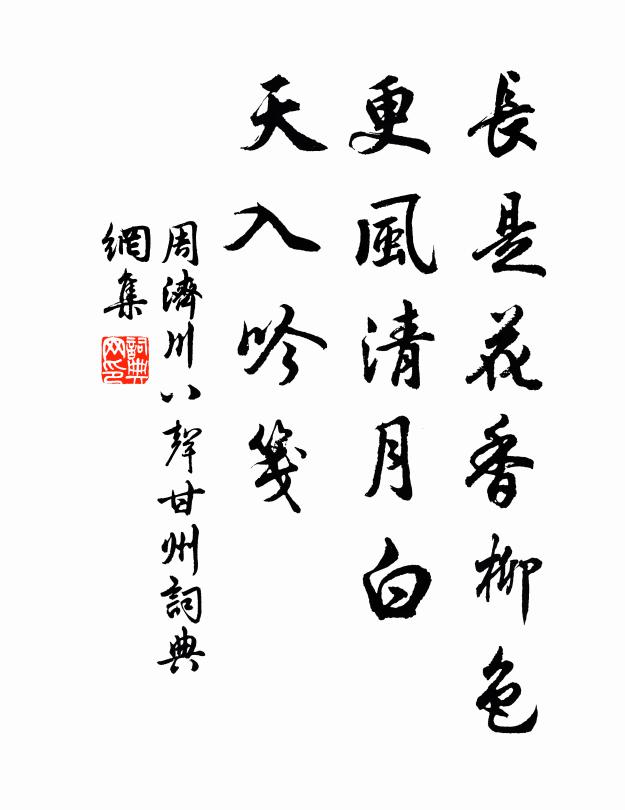 長是花香柳色
更風清月白
天入吟箋
周濟川八聲甘州詞典
網集
詞典
网印